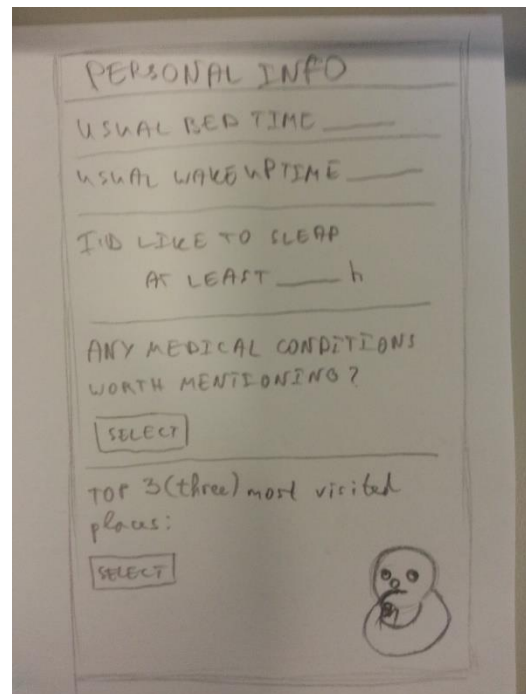 PERSONAL INFO
USUAL BED TIME ____
USUAL WAKE UP TIME ____
I'D LIKE TO SLEAP
AT LEAST ____ h
ANY MEDICAL CONDITIONS
WORTH MENTIONING?
SELECT
TOP 3 (three) most visited
places:
SELECT